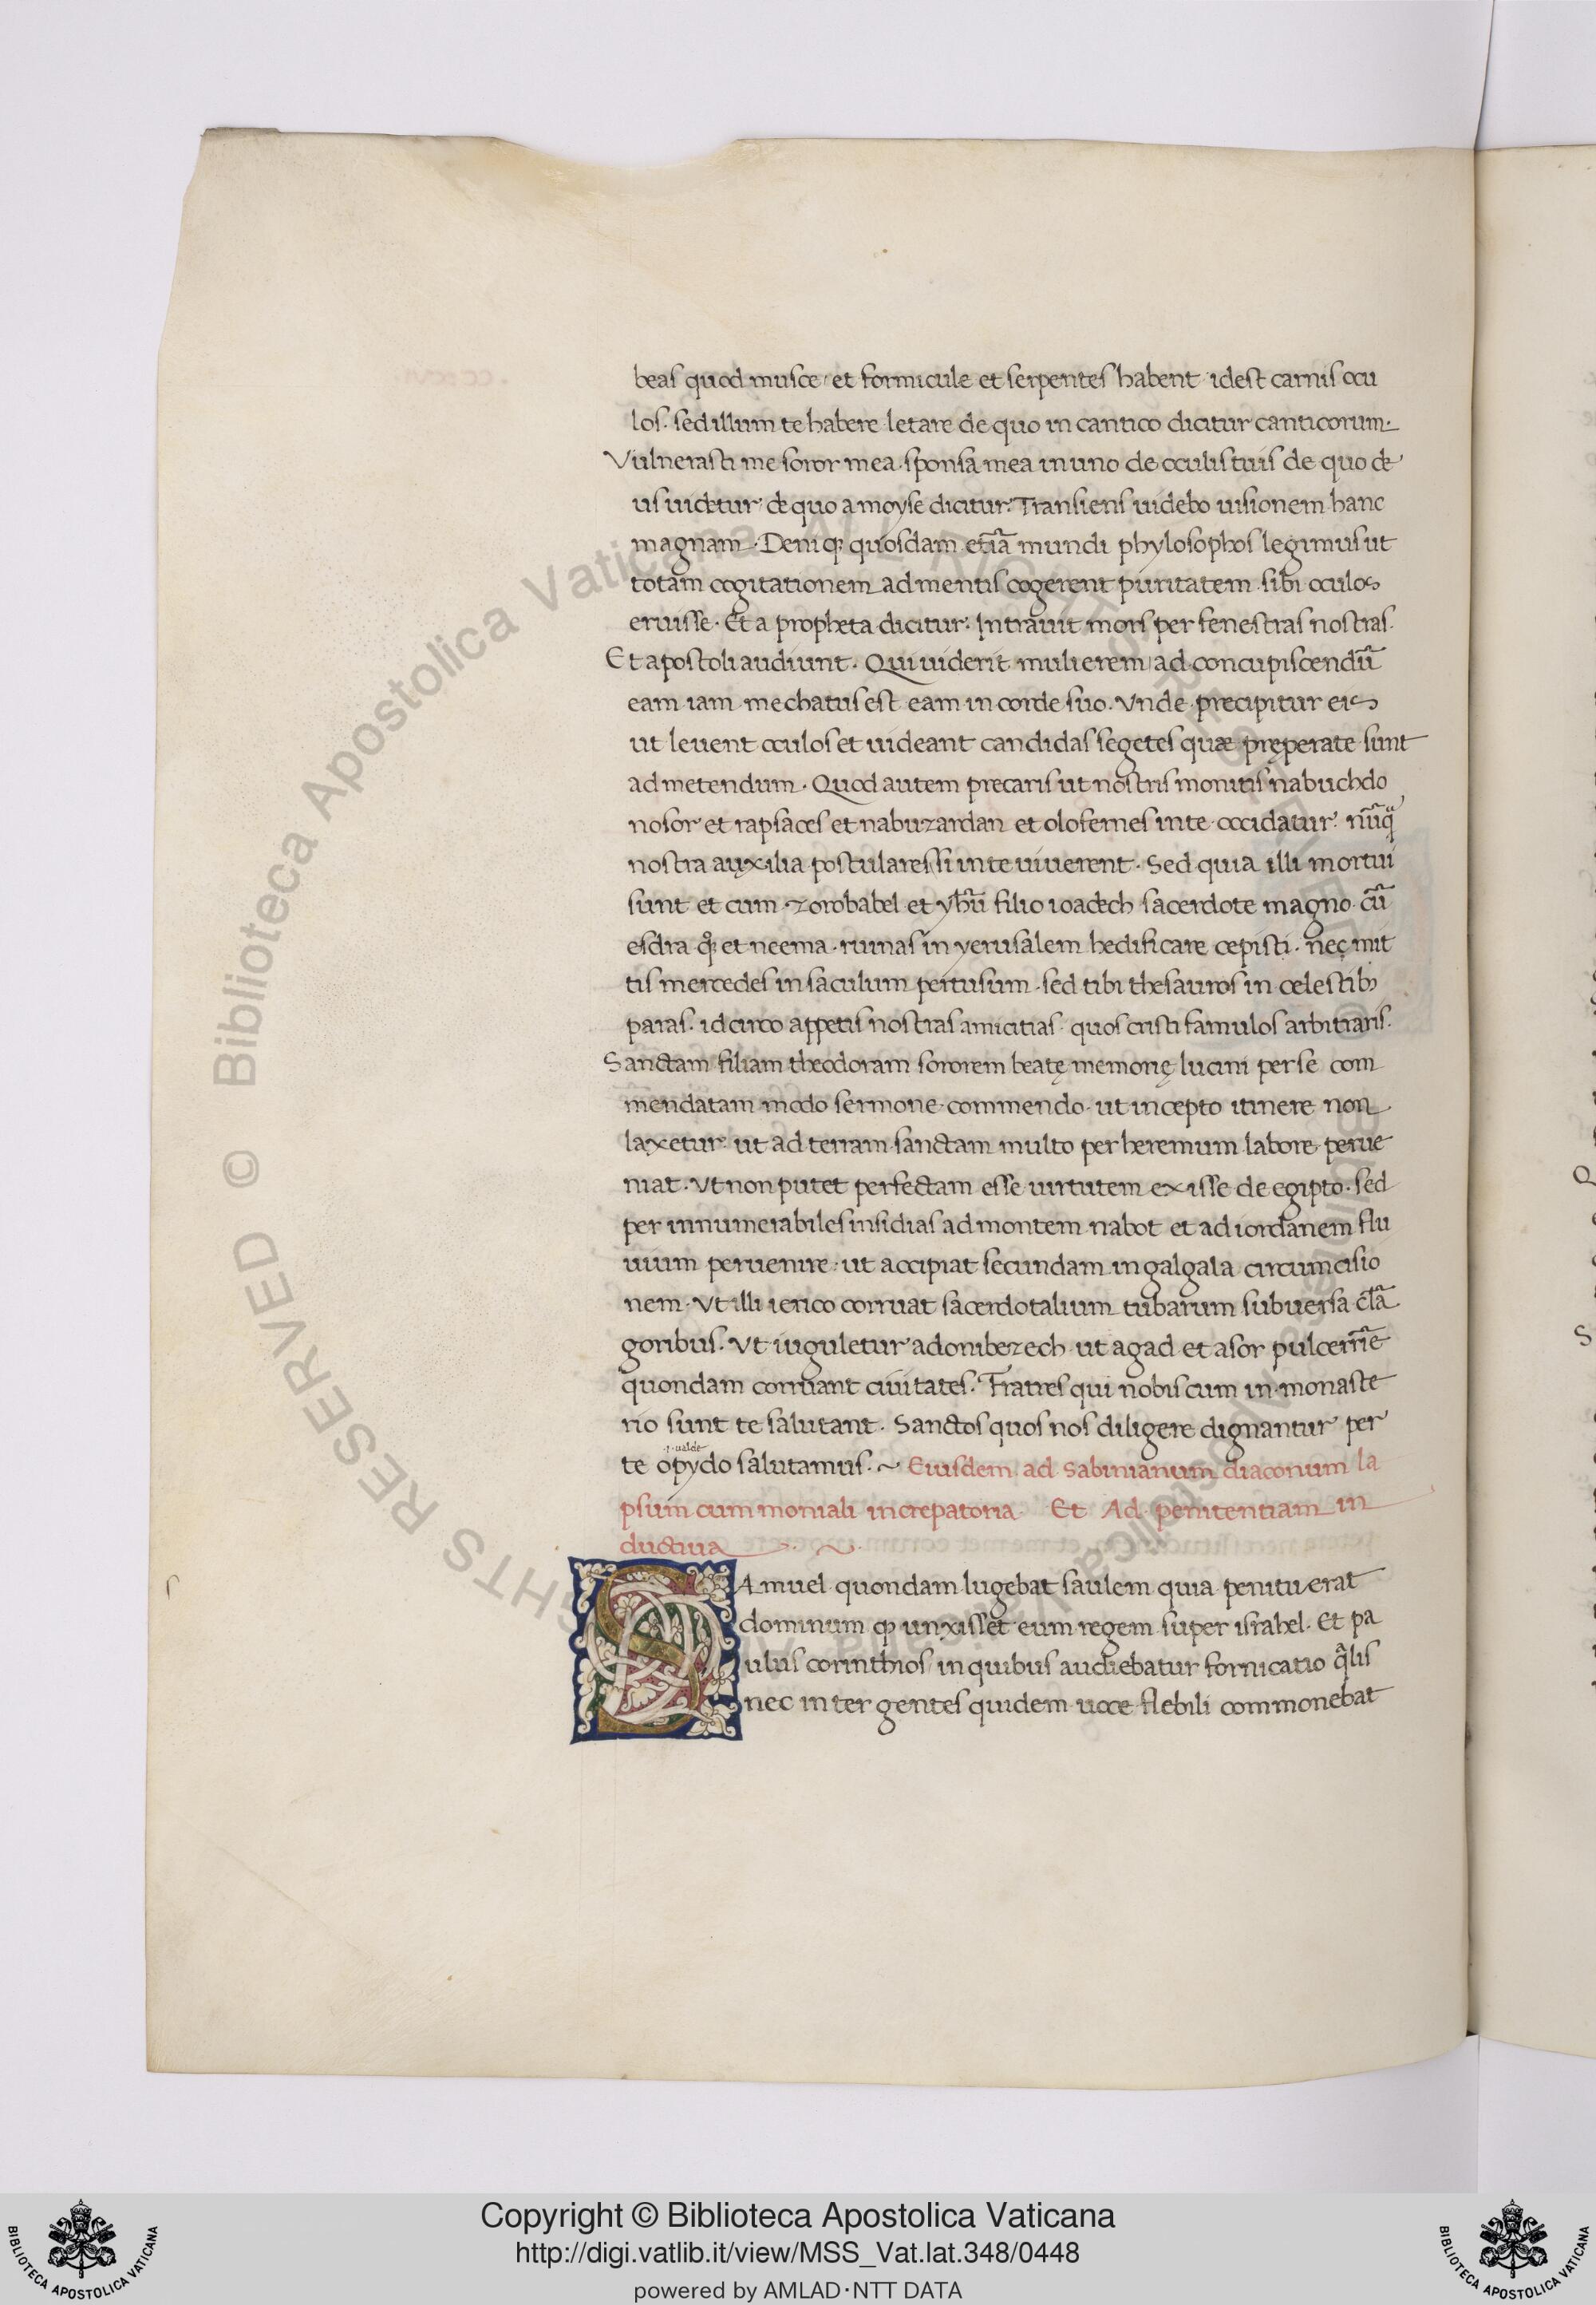 beas quod musce et formicule et serpentes habent idest carnis ocu
los. sed illum te habere letare de quo in cantico dicitur canticorum.
Vulnerasti me soror mea sponsa mea in uno de oculis tuis de quo de
us uidetur de quo a moyse dicitur. Transiens uidebo uisionem hanc
magnam. Deniqꝫ quosdam etiā mundi phylosophos legimus ut
totam cogitationem ad mentis cogerent puritatem sibi oculos
eruisse. Et a propheta dicitur: Intrauit mors per fenestras nostras.
Et apostoli audiunt. Qui uiderit mulierem ad concupiscendū
eam iam mechatus est eam in corde suo. Vnde precipitur eis
ut leuent oculos et uideant candidas segetes quæ pręperate sunt
ad metendum. Quod autem precaris ut nostris monitis nabuchdo
nosor et rapsaces et nabuzardan et olofernes in te occidatur. nūq̃
nostra auxilia postulares si in te uiuerent. Sed quia illi mortui
sunt et cum zorobabel et yhū filio ioadech sacerdote magno. cū
esdra qꝫ et neema ruinas in yerusalem hedificare cepisti. nec mit
tis mercedes in saculum pertusum. sed tibi thesauros in celestibꝫ
paras. idcirco appetis nostras amicitias quos cristi famulos arbitraris.
Sanctam filiam theodoram sororem beatę memorię lucini per se com
mendatam modo sermone commendo ut in cepto itinere non
laxetur ut ad terram sanctam multo per heremum labore perue
niat. Vt non putet perfectam esse uirtutem exisse de egipto. sed
per innumerabiles insidias ad montem nabot et ad iordanem flu
uium peruenire. ut accipiat secundam in galgala circumcisio
nem. Vt illi ierico corruat sacerdotalium tubarum subuersa clā
goribus. Vt iuguletur adonibezech ut agad et asor pulcerrīe
quondam corruant ciuitates. Fratres qui nobiscum in monaste
rio sunt te salutant. Sanctos quos nos diligere dignantur per
.i. ualde
te opydo salutamus. ~ Eiusdem ad Sabinianum diaconum la
psum cum moniali increpatoria. Et Ad penitentiam in
ductiua
SAmuel quondam lugebat saulem quia penituerat
dominum qꝫ unxisset eum regem super israhel. Et pa
ulus corinthios in quibus audiebatur fornicatio q̃lis
nec inter gentes quidem uoce flebili commonebat
© Biblioteca Apostolica Vaticana ALL RIGHTS RESERVED
Copyright © Biblioteca Apostolica Vaticana
http://digi.vatlib.it/view/MSS_Vat.lat.348/0448
powered by AMLAD·NTT DATA
BIBLIOTECA APOSTOLICA VATICANA
BIBLIOTECA APOSTOLICA VATICANA